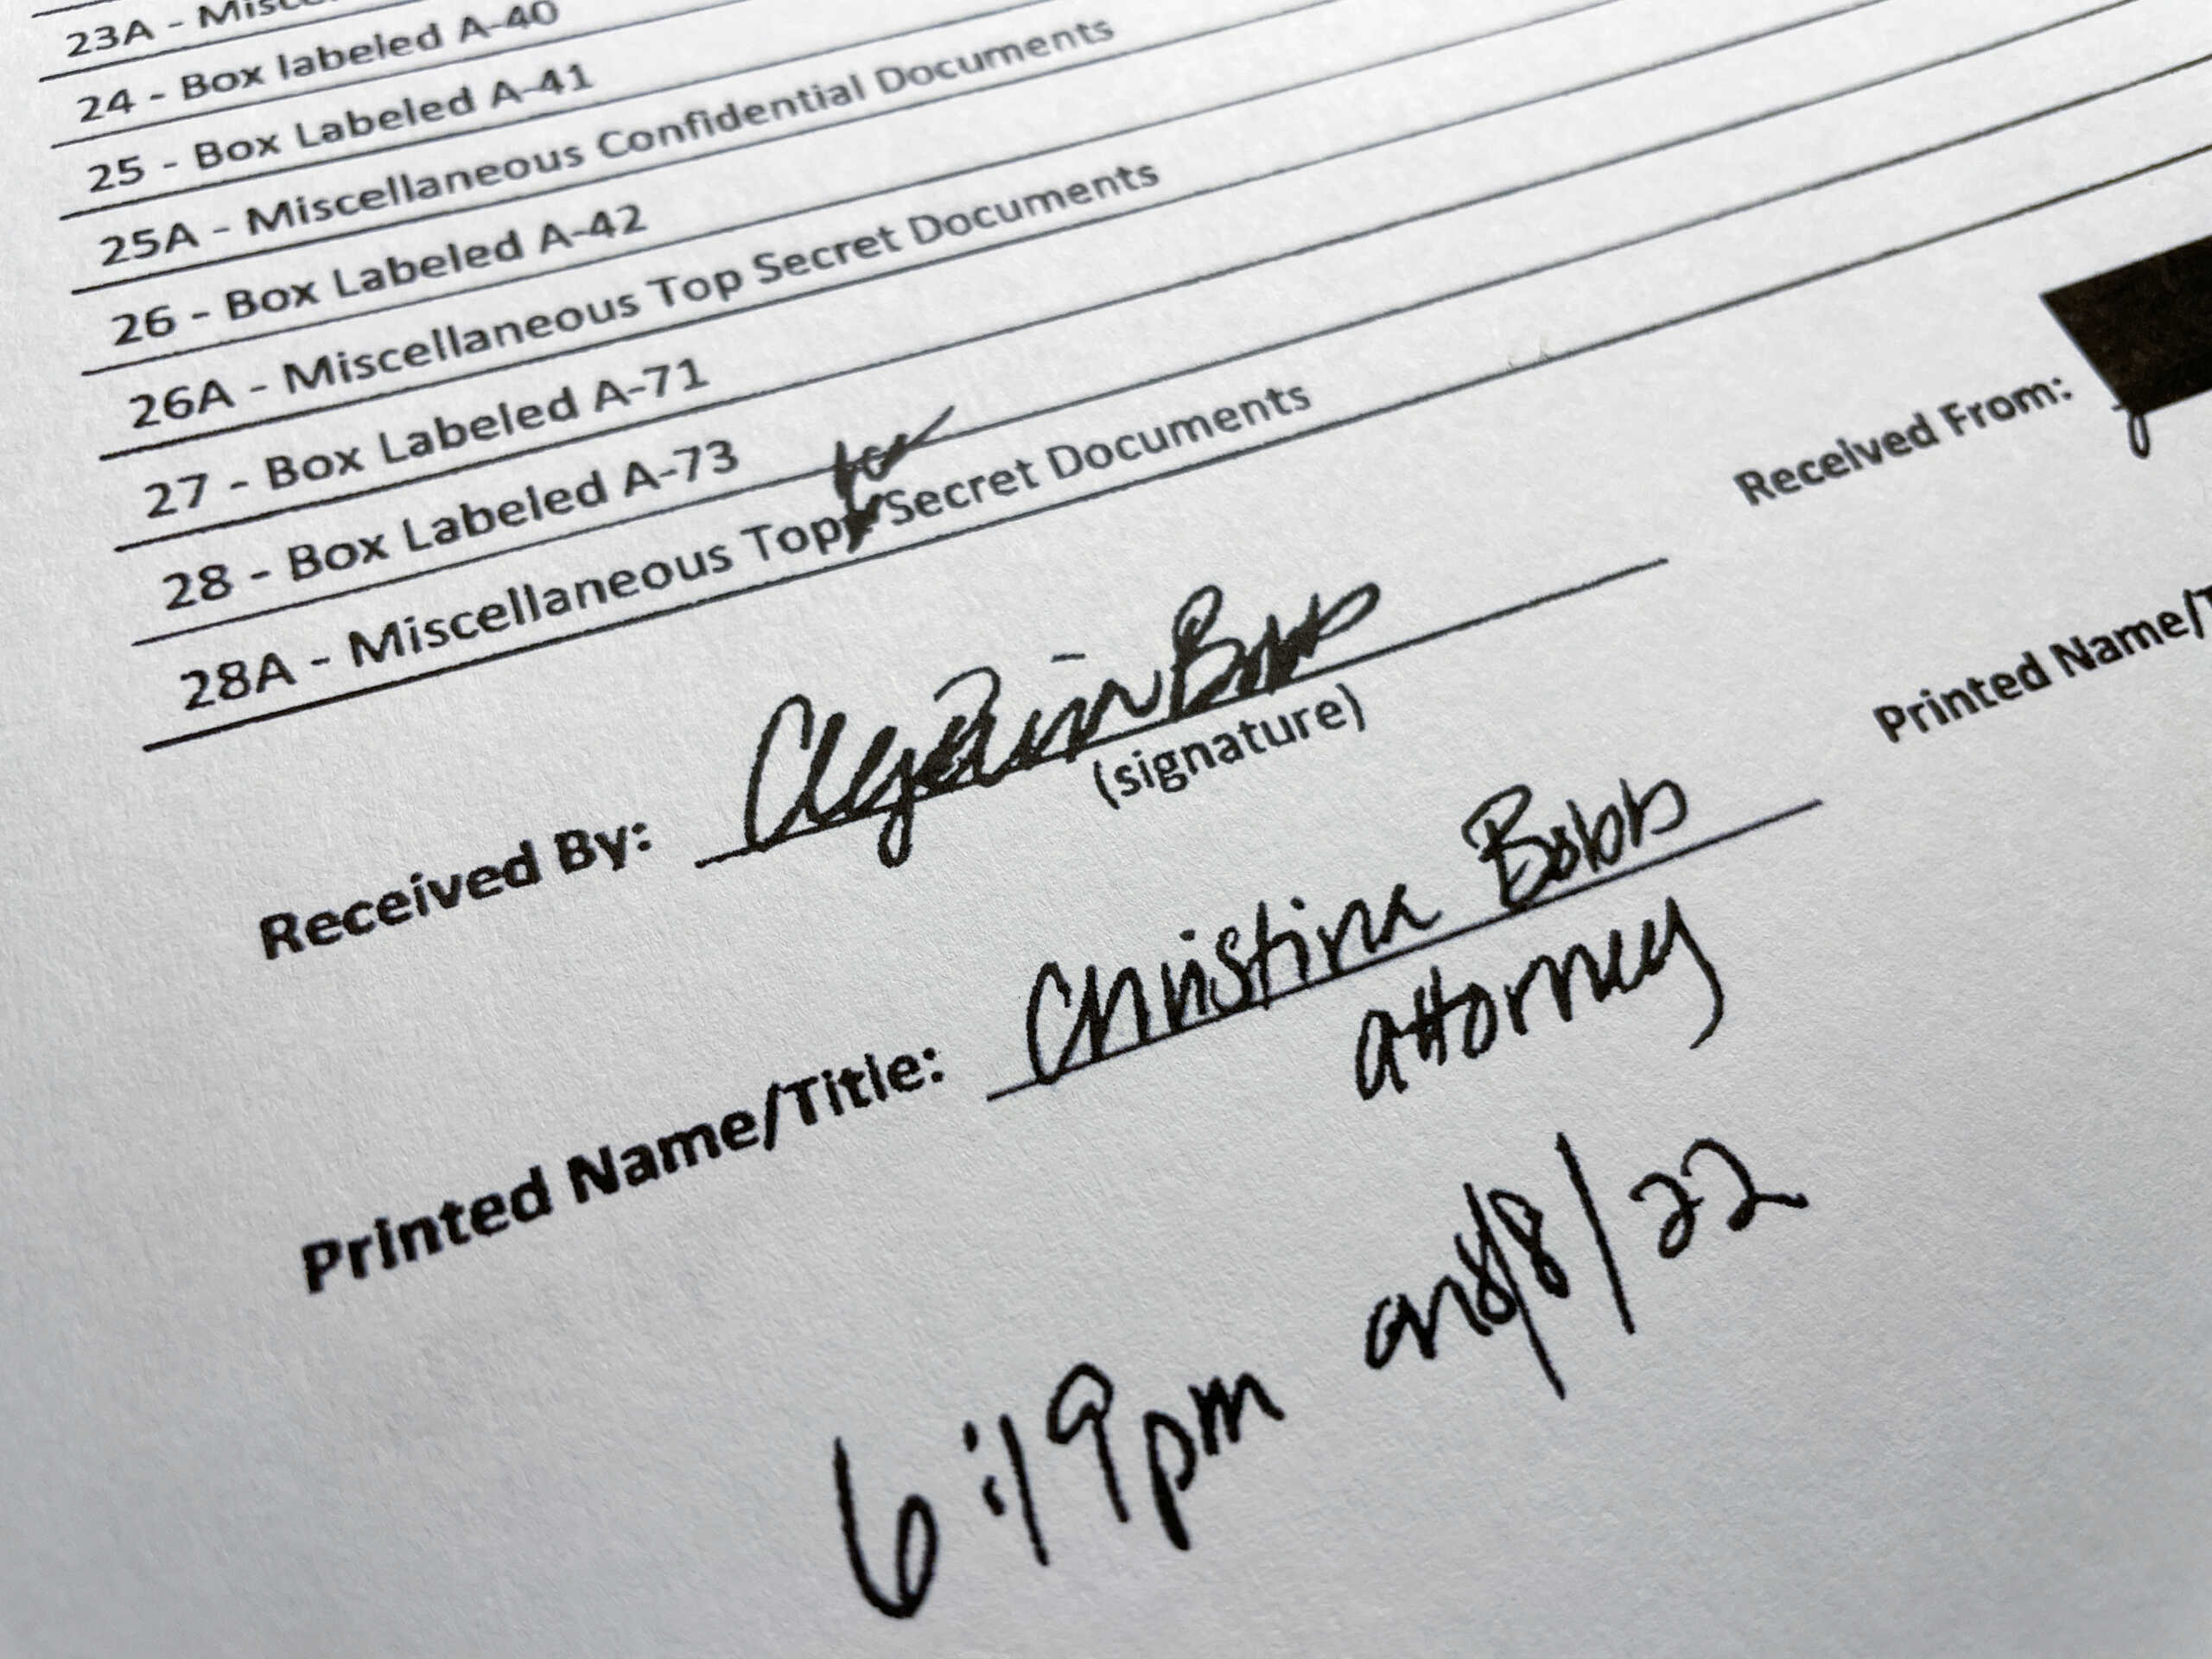 23A -
24 - Box labeled A-40
25 - Box Labeled A-41
25A - Miscellaneous Confidential Documents
26 - Box Labeled A-42
26A - Miscellaneous Top Secret Documents
27 - Box Labeled A-71
28 - Box Labeled A-73
28A - Miscellaneous Top Secret Documents
Received By:
(signature)
Printed Name/Title: Christina Bobb
attorney
6:19pm on 8/8/22
Received From:
Printed Name/T